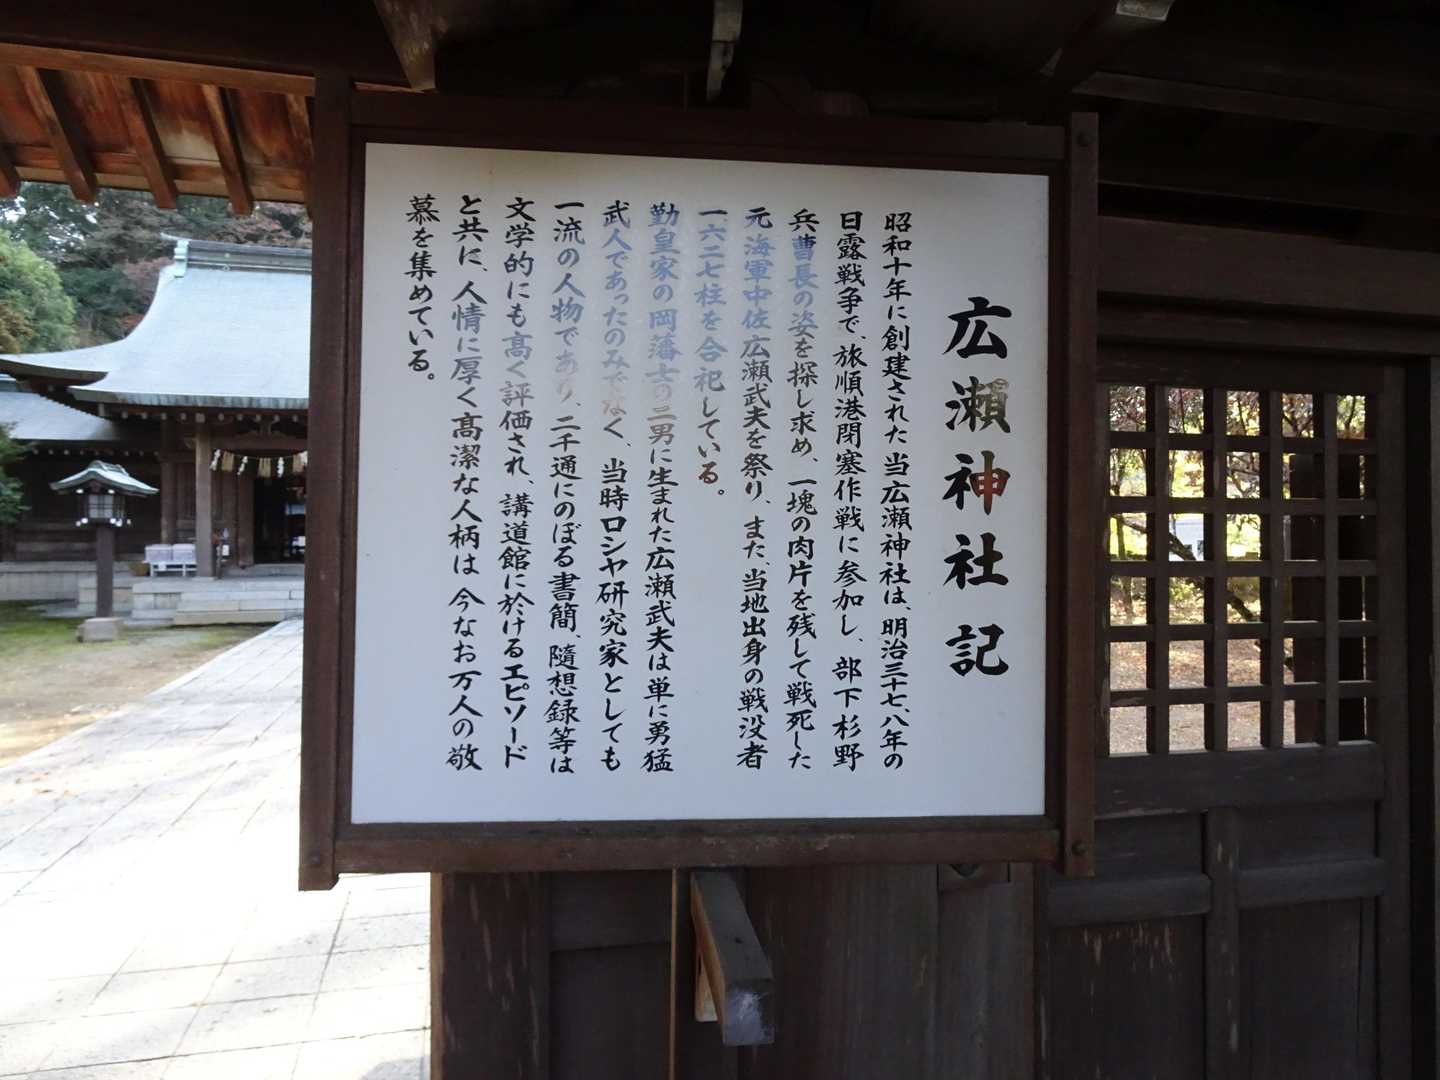 広瀬神社記
昭和十年に創建された当広瀬神社は、明治三十七、八年の
日露戦争で、旅順港閉塞作戦に参加し、部下杉野
兵曹長の姿を探し求め、一塊の肉片を残して戦死した
元海軍中佐広瀬武夫を祭り、また、当地出身の戦没者
一、六二七柱を合祀している。
勤皇家の岡藩士の二男に生まれた広瀬武夫は単に勇猛
武人であったのみでなく、当時ロシヤ研究家としても
一流の人物であり、二千通にのぼる書簡、隨想録等は
文学的にも高く評価され、講道館に於けるエピソード
と共に、人情に厚く高潔な人柄は今なお万人の敬
慕を集めている。